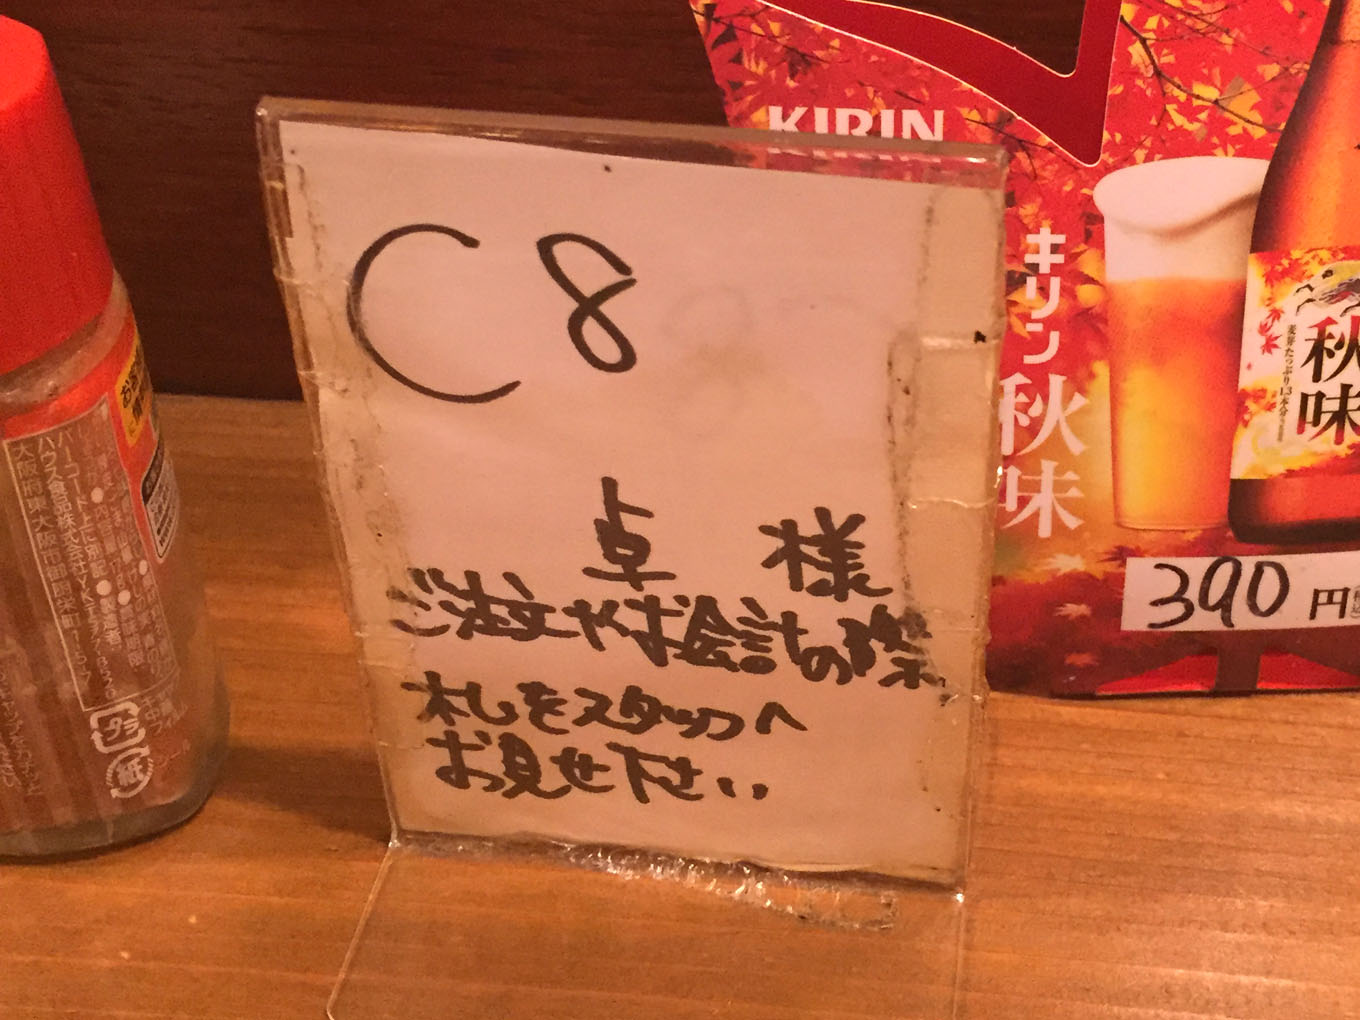 C8
卓 様
ご注文やお会計の際
札をスタッフへ
お見せ下さい
KIRIN
キリン秋味
秋味
麦芽たっぷり1.3本分
390円
ハウス食品株式会社
大阪府東大阪市御厨栄町1-5-7
紙